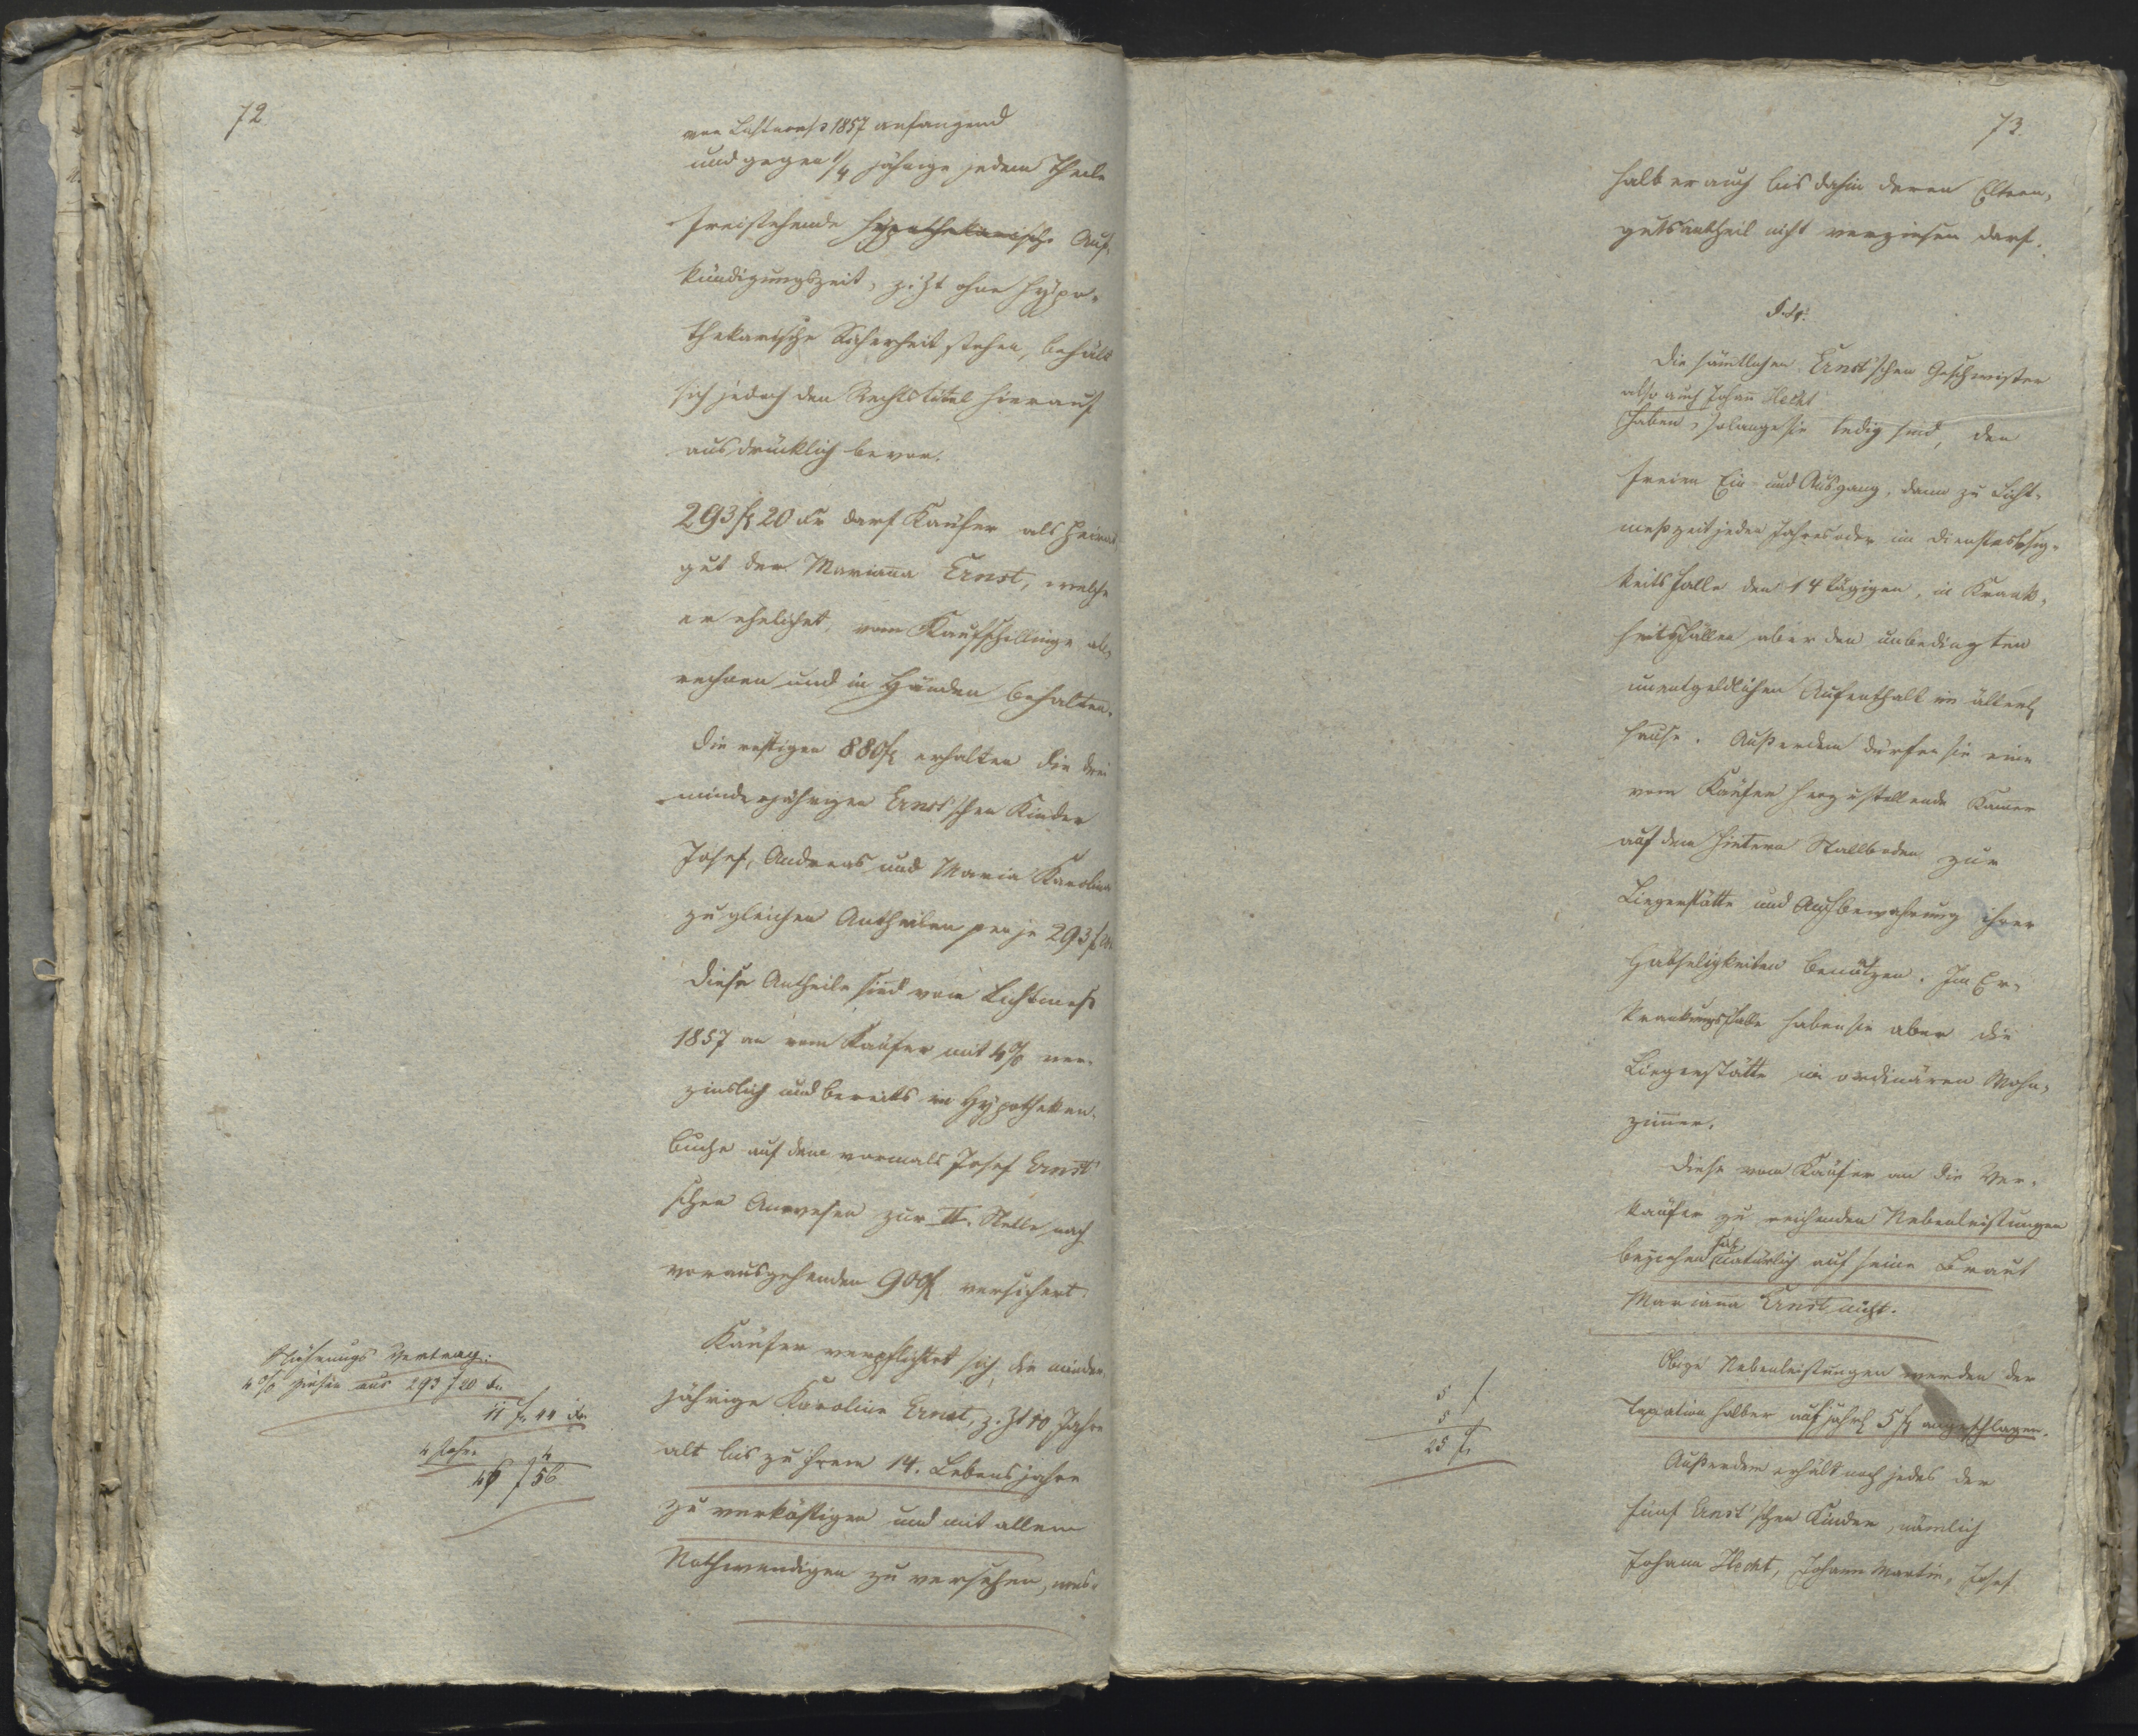 72
von Lichtmeß 1857 anfangend
und gegen 1/4 jährige jedem Theile
freistehende hypothekarische Auf-
kündigungszeit, z. Zt ohne hypo-
thekarische Sicherheit stehen, behält
sich jedoch den Rechtstitel hierauf
ausdrücklich bevor.
293 f 20 kr darf Käufer als Heirat
gut der Marianna Ernst, welche
er ehelichet, vom Kaufschillinge ab-
rechnen und in Händen behalten.
Die restigen 880 f erhalten die drei
minderjährigen Ernst'schen Kinder
Josef, Andreas und Maria Karolina
zu gleichen Antheilen per je 293 f 20
Diese Antheile sind vom Lichtmeß
1857 an vom Käufer mit 4% ver-
zinslich und bereits im Hypotheken-
buche auf dem vormals Josef Ernst'
schen Anwesen zur II. Stelle nach
vorausgehenden 900 f versichert.
Käufer verpflichtet sich, die minder-
jährige Karolina Ernst, z. Zt 10 Jahre
alt bis zu ihrem 14. Lebensjahre
zu verköstigen und mit allem
Nothwendigen zu versehen, wes-
Nahrungs Vertrag:
4% Zinsen aus 293 f 20 kr
11 f 44 kr
4 Jahre 4
46 f 56
73.
halb er auch bis dahin deren Eltern-
gutsantheil nicht verzinsen darf.
Die sämtlichen Ernst'schen Geschwister
also auch Johann Hecht
haben, solange sie ledig sind, den
freien Ein- und Ausgang, dann zu Licht-
meßzeit jeden Jahres oder im Dienstlosig-
keitsfalle den 14 tägigen, in Krank-
heitsfällen aber den unbedingten
unentgeldlichen Aufenthalt im älterl.
Hause. Außerdem dürfen sie eine
vom Käufer herzustellende Kammer
auf dem hintern Stallboden zur
Liegerstätte und Aufbewahrung ihrer
Habseligkeiten benützen. Im Er-
krankungsfalle haben sie aber die
Liegerstätte im ordinären Wohn-
zimmer.
Diese vom Käufer an die Ver-
käufer zu reichenden Nebenleistungen
beziehen sich natürlich auf seine Braut
Marianna Ernst nicht.
Obige Nebenleistungen werden der
Taxation halber auf jährl 5 f angeschlagen.
5 f
5
25 f
Außerdem erhält noch jedes der
fünf Ernst'schen Kinder, nämlich
Johann Hecht, Johann Martin, Josef